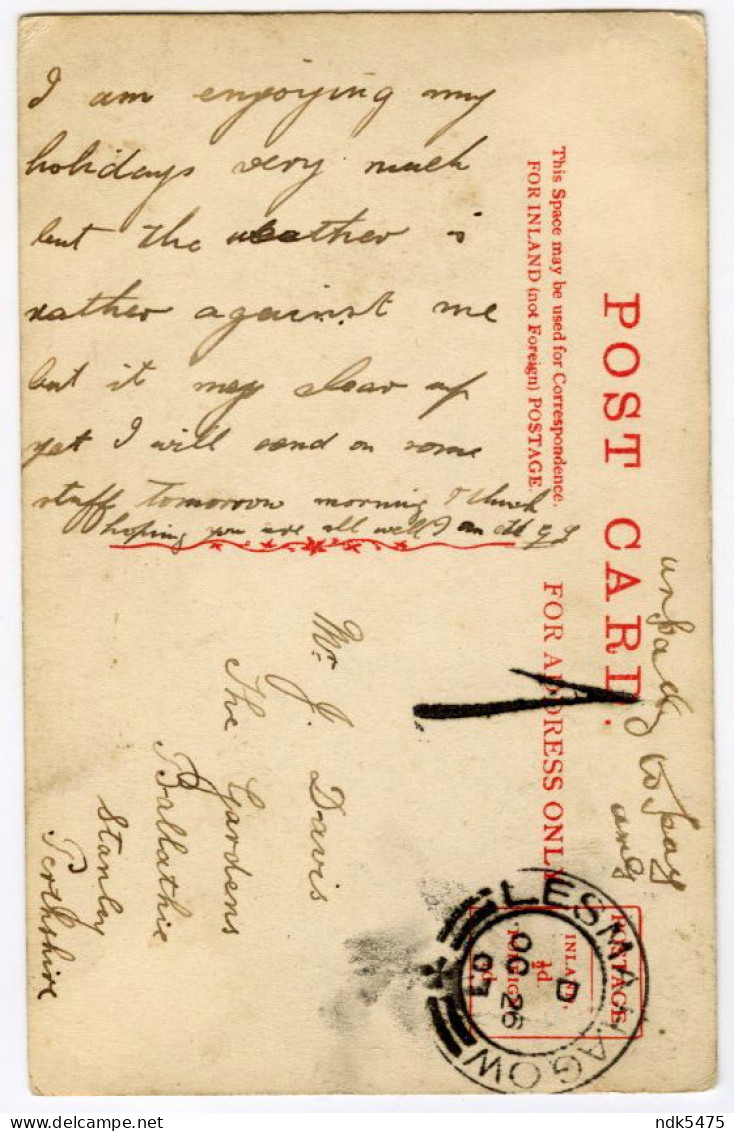 I am enjoying my
holidays very much
but the weather is
rather against me
but it may clear up
yet I will send on some
stuff tomorrow morning
hoping you are all well I am
POST CARD.
This Space may be used for Correspondence.
FOR INLAND (not Foreign) POSTAGE.
FOR ADDRESS ONLY.
Mr J. Davis
The Gardens
Ballathie
Stanley
Perthshire
to pay
1
POSTAGE
INLAND,
½d.
FOREIGN
LESMAHAGOW
D
OC 26
07
ndk5475